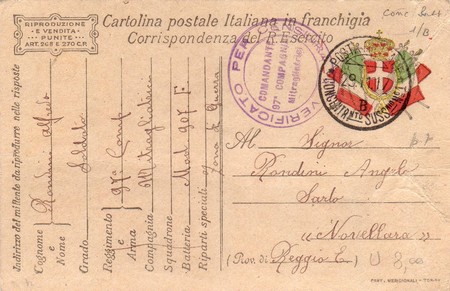 RIPRODUZIONE
E VENDITA
PUNITE
ART. 268 E 270 C.P.
Cartolina postale Italiana in franchigia
Corrispondenza del R. Esercito
1/B
VERIFICATO PER
COMANDANTE
97ª COMPAGN
Mitraglieri
POSTA
B
CONCENTRNTO SUSS
Indirizzo del mittente da riprodurre nelle risposte
Cognome e Nome Rondini Alfredo
Grado Soldato
Reggimento e Arma 97ª Comp
Compagnia Mitraglitrici
Squadrone
Batteria Mod 907 F.
Riparti speciali Zona di Guerra
Al Signor
Rondini Angelo
Sarto
"Novellara"
(Prov. di Reggio E.)
8,00
PART. MERIDIONALI - TORINO